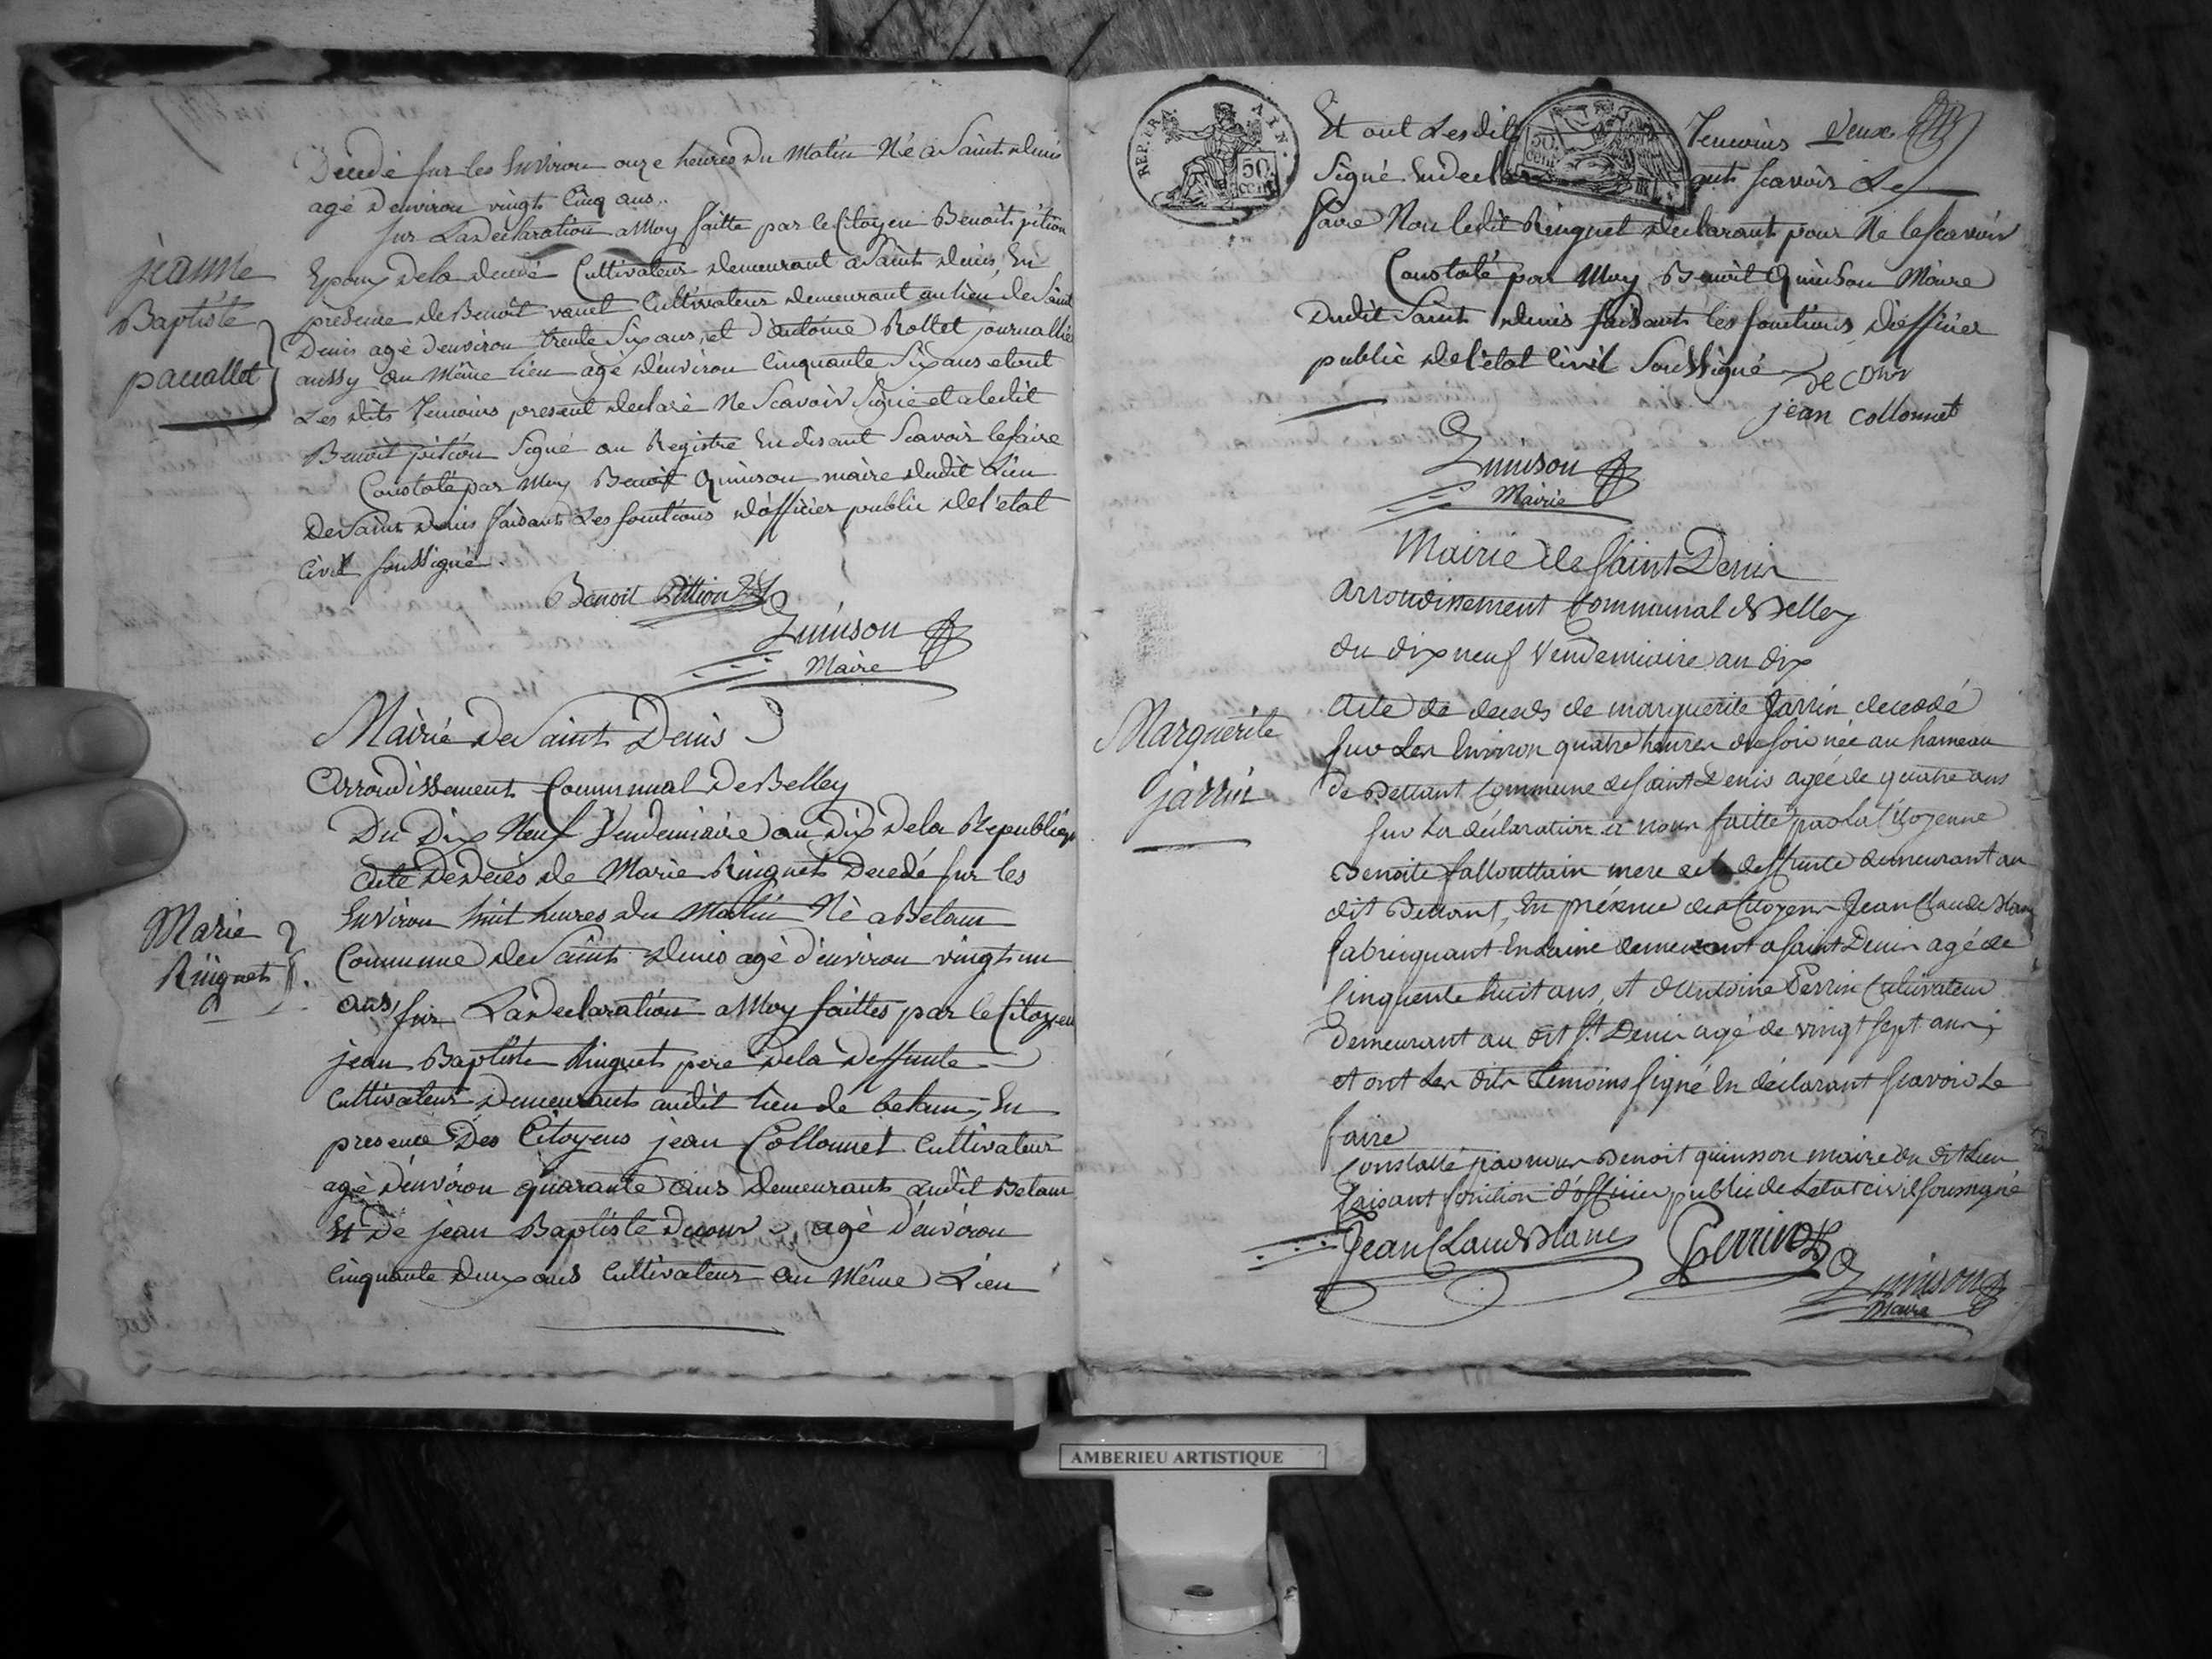 Décédé sur les Environ onze heures Du Matin Né a Saint denis
agé denviron vingt Cinq ans..
sur La declaration a Moy faitte par le Citoyen Benoit pition
Epoux de la decedé Cultivateur demeurant a Saint denis, En
presence de Benoit Cultivateur demeurant au lieu de Saint
Denis agé denviron trente Six ans, et d'antoine Rollet journallier
aussy au Même lieu agé denviron Cinquante Six ans et ont
Les dits temoins present declaré Ne Scavoir Signé et a ledit
Benoit pition Signé au Registre En disant Scavoir le faire
Constaté par Moy Benoit Quinson maire dudit Lieu
De Saint Denis faisant Les fonctions d'officier public de l'etat
Civil soussigné.
jeanne
Baptiste
pacallet
Benoit Pittion
Quinson
Maire
Mairie De Saint Denis
Arrondissement Communal De Belley
Du Dix Neuf Vendemiaire an Dix De la Republique
acte De Décés de Marie Ringuet Decedé sur les
Environ huit heures du Matin Né a Betam
Commune de Saint denis agé d'environ vingt un
ans, sur La declaration a Moy faittes par le Citoyen
jean Baptiste Ringuet pere de la deffunte
Cultivateur demeurant audit lieu de betam, En
presence Des Citoyens jean Collonnet Cultivateur
agé d'environ quarante ans demeurant audit Betam
Et De jean Baptiste Decour, agé d'environ
Cinquante deux ans Cultivateur au Même Lieu
Marie
Ringuet
REP. FRA.
AIN.
50.
cent
Et ont Les dits Temoins deux
Signé En declarant scavoir Le
faire Non ledit Ringuet declarant pour Ne le scavoir
Constaté par Moy Benoit Quinson Maire
Dudit Saint denis faisant les fonctions d'officier
public de l'etat Civil Soussigné
De Cour
jean collonnet
Quinson
Mairie
Mairie de Saint Denis
arrondissement Communal de Belley
du dix neuf Vendemiaire an dix
Acte de deces de marguerite Jarrin decedé
sur les Environ quatre heures de soir née au hameau
de Bettant Commune de Saint Denis agée de quatre ans
sur la déclaration a nous faitte par la Citoyenne
Benoite mere de la deffunte demeurant au
dit Bettant, En présence des Citoyens Jean Claude Blanc
fabriquant En laine demeurant a Saint Denis agé de
Cinquente huit ans, et d'Antoine Perrin Cultivateur
demeurant au dit St. Denis agé de vingt sept ans;
et ont les dits temoins Signé En déclarant scavoir Le
faire
Constatté par nous Benoit quinsson maire du dit Lieu
faisant fonction d'officier public de Letat civil soussigné
Marguerite
jarrin
Jean Claude Blanc
Perrin
Quinson
Maire
AMBERIEU ARTISTIQUE